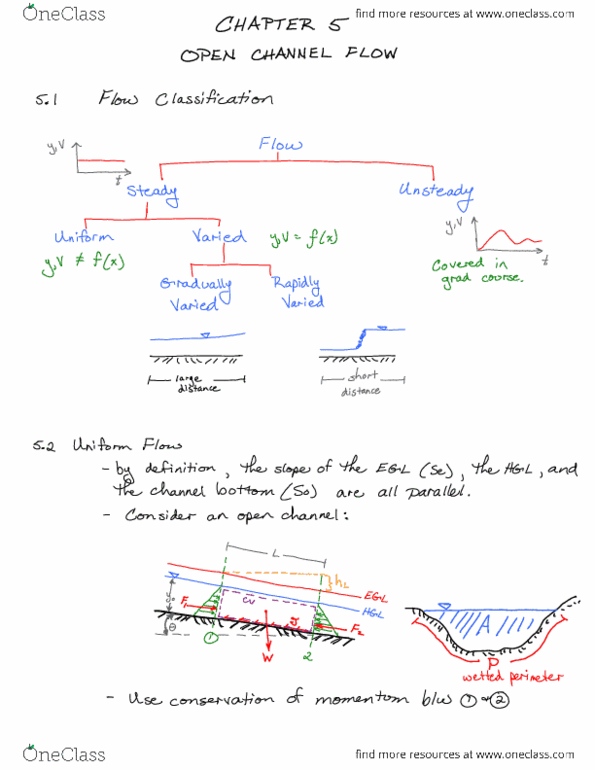 OneClass
find more resources at www.oneclass.com
CHAPTER 5
OPEN CHANNEL FLOW
5.1 Flow Classification
y,V
t
Flow
Steady
Unsteady
Uniform
Varied
y,V = f(x)
y,V ≠ f(x)
y,V
t
Covered in
grad course.
Gradually
Varied
Rapidly
Varied
large
distance
short
distance
5.2 Uniform Flow
- by definition, the slope of the EGL (Se), the HGL, and
the channel bottom (So) are all parallel.
- Consider an open channel:
L
hL
EGL
HGL
cv
F1
F2
θ
W
1
2
A
P
wetted perimeter
- Use conservation of momentum b/w ① & ②
OneClass
find more resources at www.oneclass.com